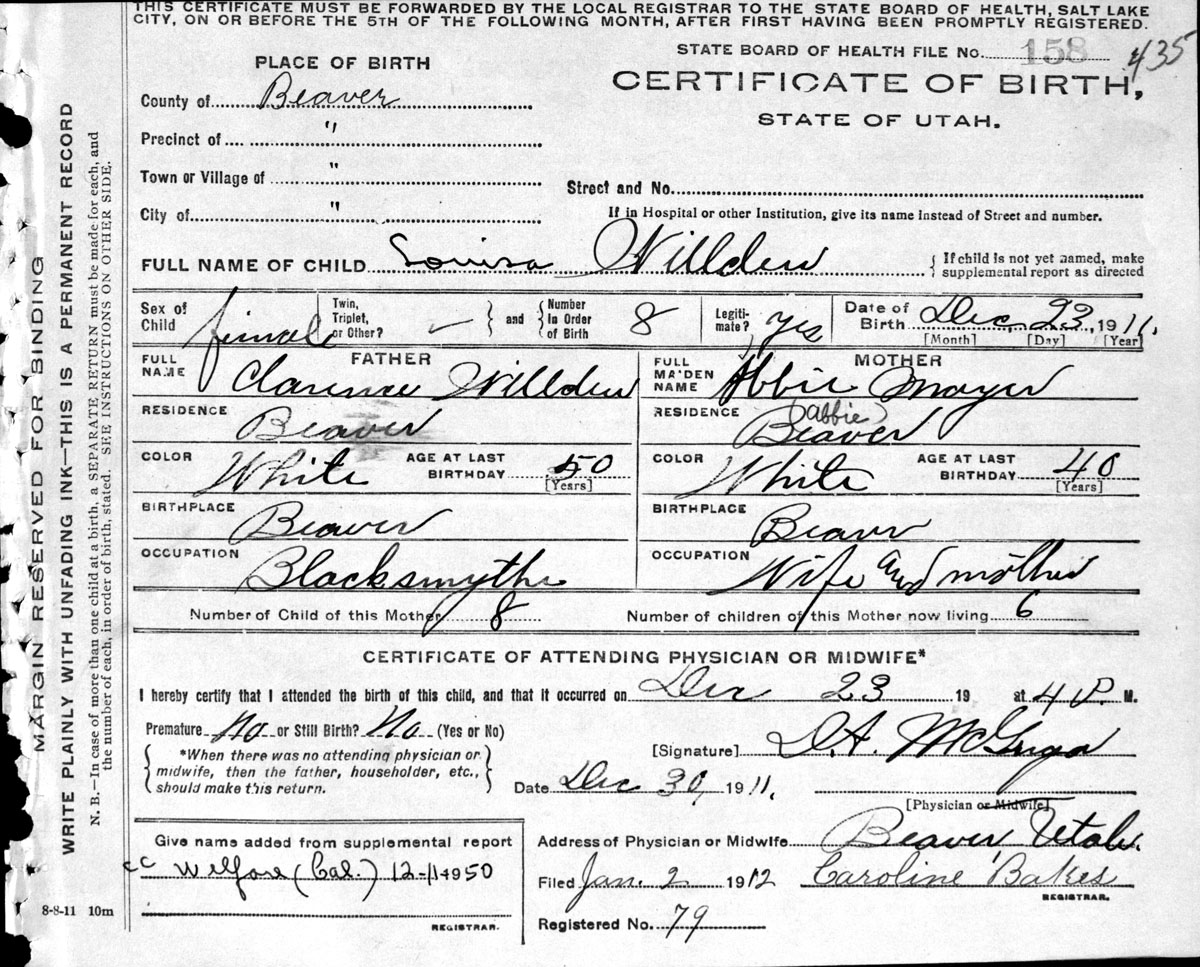 THIS CERTIFICATE MUST BE FORWARDED BY THE LOCAL REGISTRAR TO THE STATE BOARD OF HEALTH, SALT LAKE
CITY, ON OR BEFORE THE 5TH OF THE FOLLOWING MONTH, AFTER FIRST HAVING BEEN PROMPTLY REGISTERED.
STATE BOARD OF HEALTH FILE No. 158 435
PLACE OF BIRTH
CERTIFICATE OF BIRTH,
STATE OF UTAH.
County of Beaver
Precinct of "
Town or Village of "
Street and No.
City of "
If in Hospital or other Institution, give its name instead of Street and number.
FULL NAME OF CHILD Louisa Willden
If child is not yet named, make
supplemental report as directed
Sex of Child female
Twin, Triplet, or Other? and Number In Order of Birth 8
Legiti-mate? yes
Date of Birth Dec 23, 1911.
[Month] [Day] [Year]
FATHER
FULL NAME Clarence Willden
RESIDENCE Beaver
COLOR White AGE AT LAST BIRTHDAY 50
[Years]
BIRTHPLACE Beaver
OCCUPATION Blacksmythe
MOTHER
FULL MAIDEN NAME Abbie Moyer
(Abbie)
RESIDENCE Beaver
COLOR White AGE AT LAST BIRTHDAY 40
[Years]
BIRTHPLACE Beavr
OCCUPATION Wife and mother
Number of Child of this Mother 8 Number of children of this Mother now living 6
CERTIFICATE OF ATTENDING PHYSICIAN OR MIDWIFE*
I hereby certify that I attended the birth of this child, and that it occurred on Dec 23 19 at 4 P. M.
Premature No or Still Birth? No (Yes or No)
*When there was no attending physician or
midwife, then the father, householder, etc.,
should make this return.
[Signature] D.A. McGregor
Date Dec 30, 1911.
[Physician or Midwife]
Give name added from supplemental report
cc Welfare (Cal.) 12-14-950
REGISTRAR.
8-8-11 10m
Address of Physician or Midwife Beaver, Utah.
Filed Jan. 2 1912 Caroline Bakes
REGISTRAR.
Registered No. 79
MARGIN RESERVED FOR BINDING
WRITE PLAINLY WITH UNFADING INK—THIS IS A PERMANENT RECORD
N. B.—In case of more than one child at a birth, a SEPARATE RETURN must be made for each, and
the number of each, in order of birth, stated. SEE INSTRUCTIONS ON OTHER SIDE.